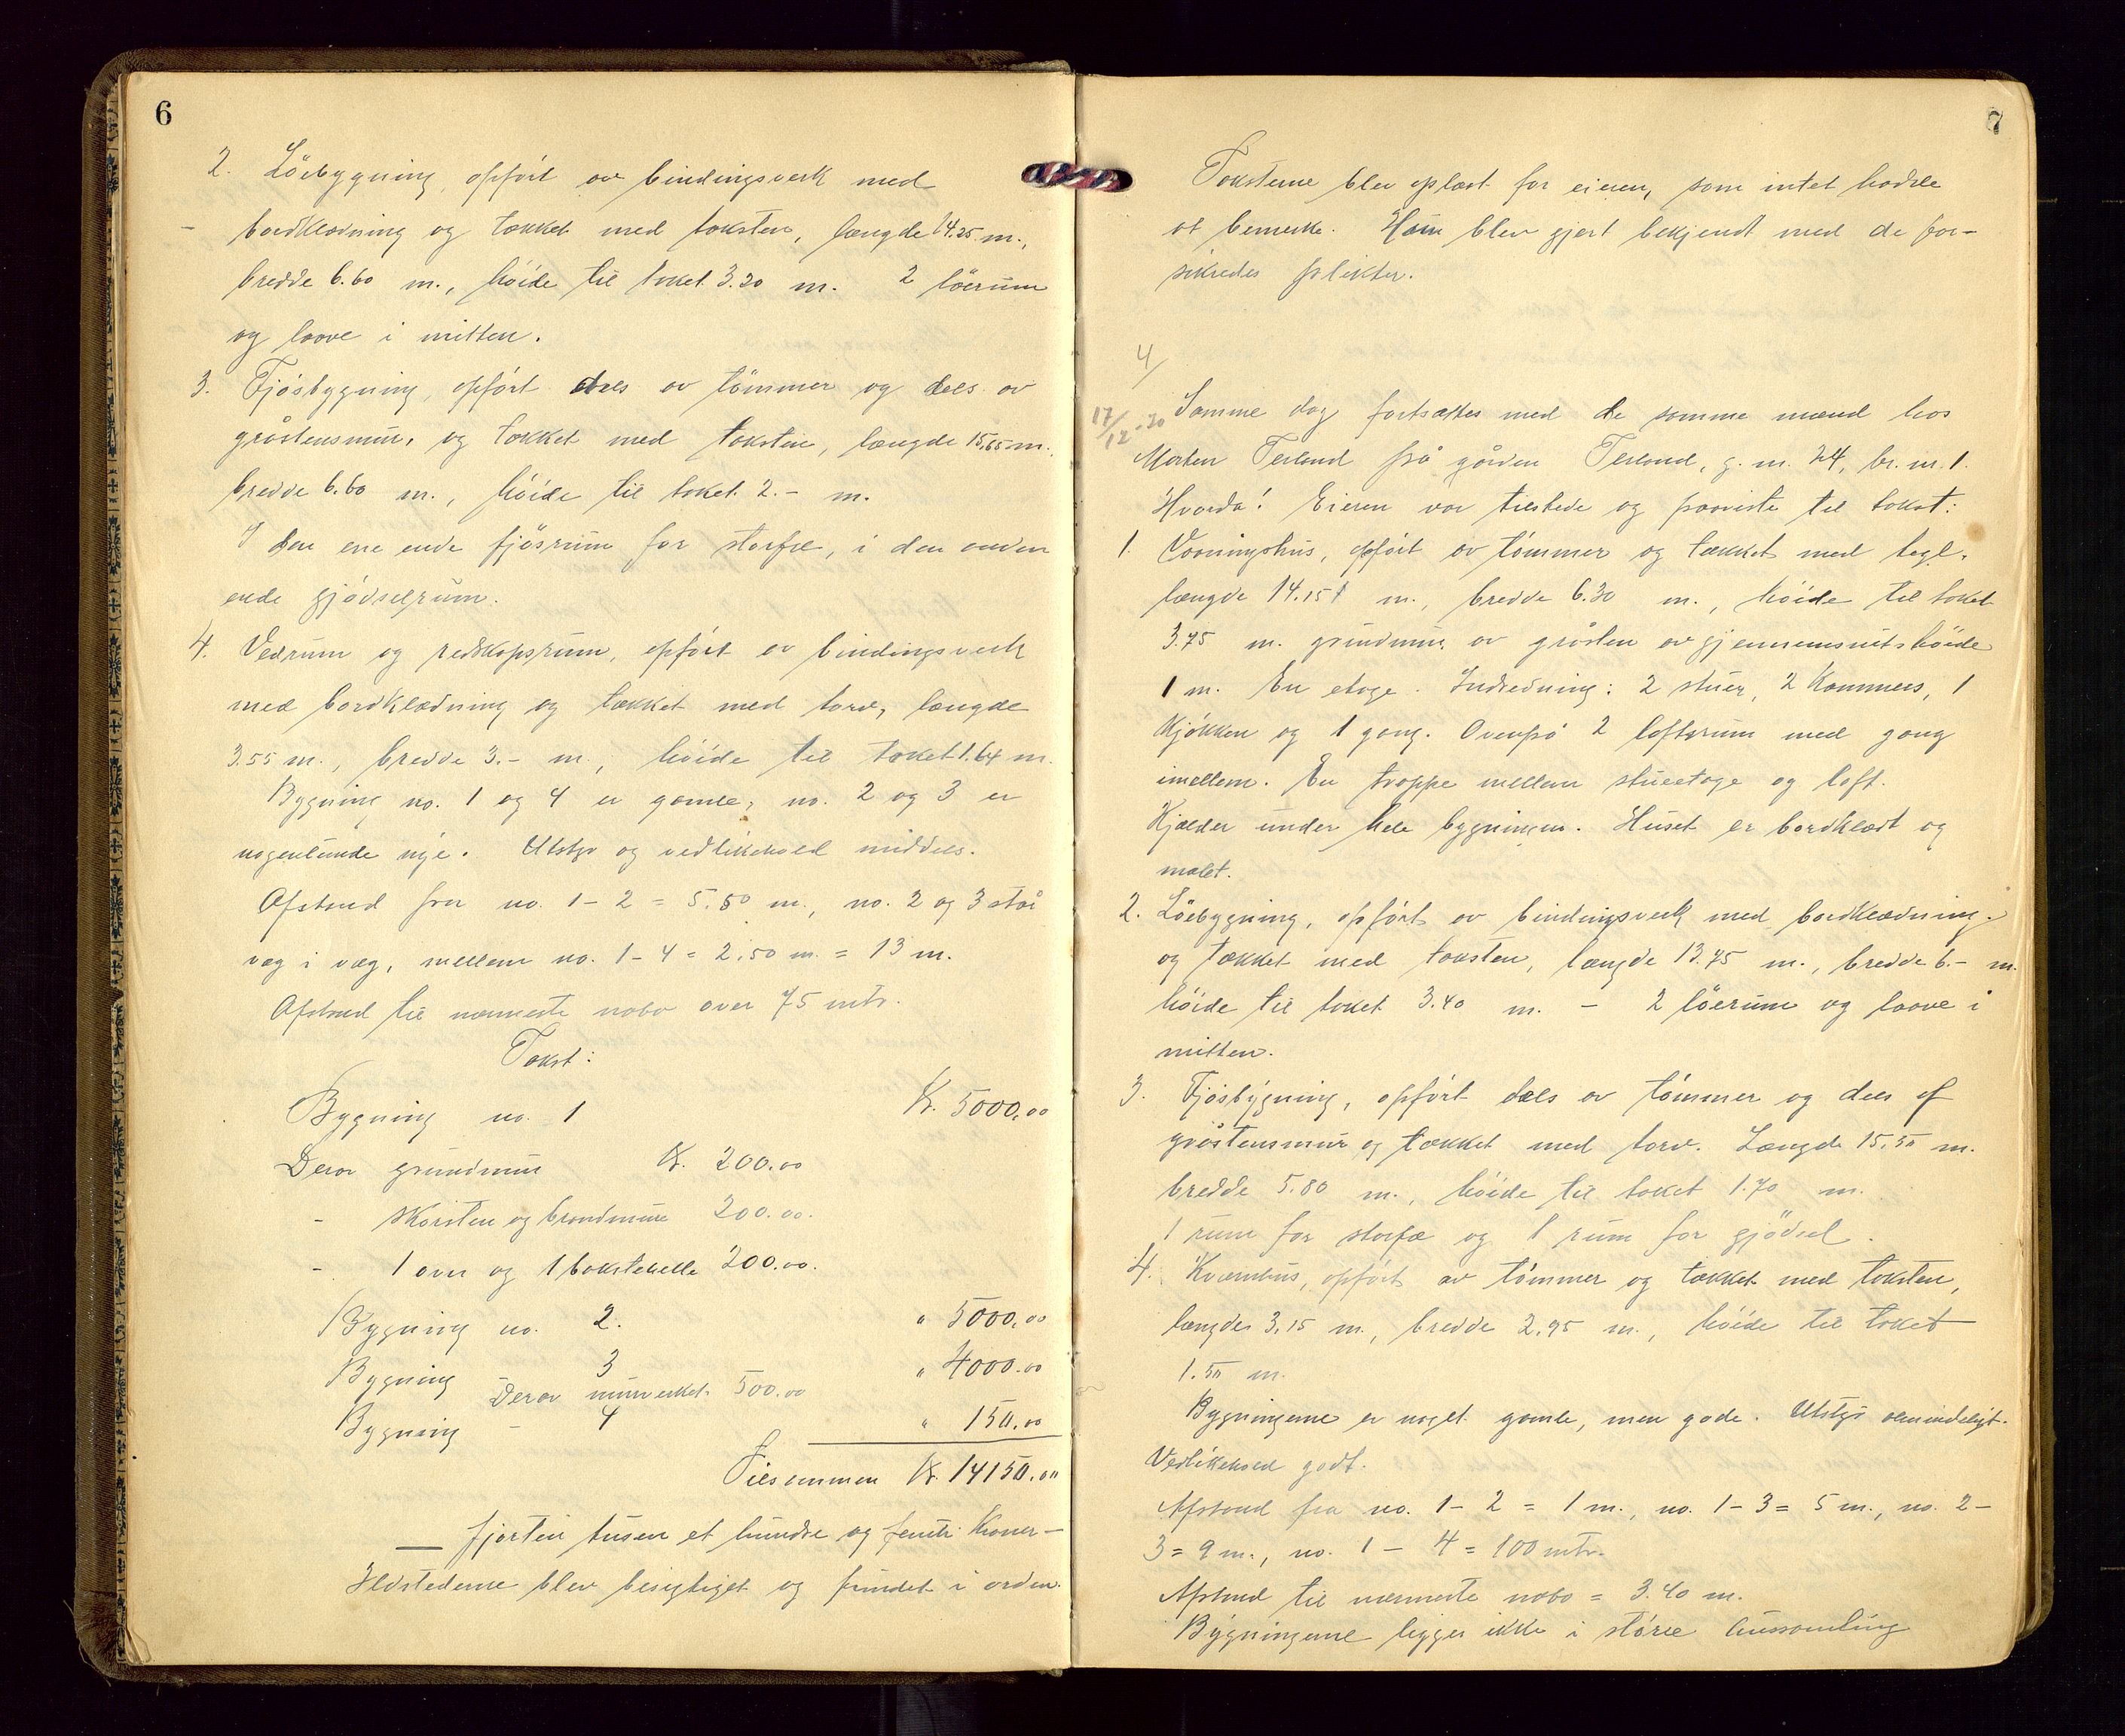 6
2. Löebygning, opført av bindingsverk med
bordklædning og tækket med taksten, længde 14.25 m.,
bredde 6.60 m., höide til taket 3.20 m. 2 löerum
og laave i mitten.
3. Fjösbygning, opført dels av tömmer og dels av
gråstensmur, og tækket med taksten, længde 15,65 m.,
bredde 6.60 m., höide til taket 2.- m.
I den ene ende fjösrum for storfæ, i den anden
ende gjödselrum.
4. Vedrum og redskapsrum, opført av bindingsverk
med bordklædning og tækket med torv, længde
3.55 m., bredde 3.- m., höide til taket 1.64 m.
Bygning no. 1 og 4 er gamle, no. 2 og 3 er
nogenlunde nye. Utstyr og vedlikehold middels.
Afstand fra no. 1 - 2 = 5.50 m., no. 2 og 3 står
væg i væg, mellem no. 1 - 4 = 2,50 m. = 13 m.
Afstand til nærmeste nabo over 75 mtr.
Takst:
Bygning no. 1 Kr. 5000,00
Derav grundmur Kr. 200.00
- skorsten og brandmure 200.00.
- 1 ovn og 1 bakstehelle 200.00.
Bygning no. 2. " 5000,00
Bygning 3 " 4000.00
Derav murverket 500.00
Bygning - 4 " 150.00
Tilsammen Kr. 14150.00
fjorten tusen et hundre og femti Kroner -
Ildstederne blev besigtiget og fundet i orden.
7
Taksterne blev oplæst for eieren, som intet hadde
at bemerke. Han blev gjort bekjendt med de for-
sikredes plikter.
4/
17/12-20 Samme dag fortsattes med de samme mænd hos
Morten Terland på gården Terland, g. n. 24, br. n. 1.
Hvorda! Eieren var tilstede og paaviste til takst:
1. Vaaningshus, opført av tömmer og tækket med tegl,
længde 14.15 m., bredde 6.30 m., höide til taket
3.75 m. grundmur av gråsten av gjennemsnitshöide
1 m. En etage. Indredning: 2 stuer, 2 Kammers, 1
Kjökken og 1 gang. Ovenpå 2 loftsrum med gang
imellem. En trappe mellem stueetage og loft.
Kjælder under hele bygningen. Huset er bordklædt og
malet.
2. Löebygning, opført av bindingsverk med bordklædning
og tækket med taksten, længde 13.75 m., bredde 6.- m.
höide til taket 3.40 m. - 2 löerum og laave i
mitten.
3. Fjösbygning, opført dels av tömmer og dels af
gråstensmur og tækket med torv. Længde 15.50 m.
bredde 5.80 m., höide til taket 1.70 m.
1 rum for storfæ og 1 rum for gjödsel.
4. Kvernhus, opført av tömmer og tækket med taksten,
længde 3.15 m., bredde 2.95 m., höide til taket
1.50 m.
Bygningerne er noget gamle, men gode. Utstyr almindeligt.
Vedlikehold godt.
Afstand fra no. 1 - 2 = 1 m., no. 1 - 3 = 5 m., no. 2 -
3 = 9 m., no. 1 - 4 = 100 mtr.
Afstand til nærmeste nabo = 3.40 m.
Bygningerne ligger ikke i större hussamling